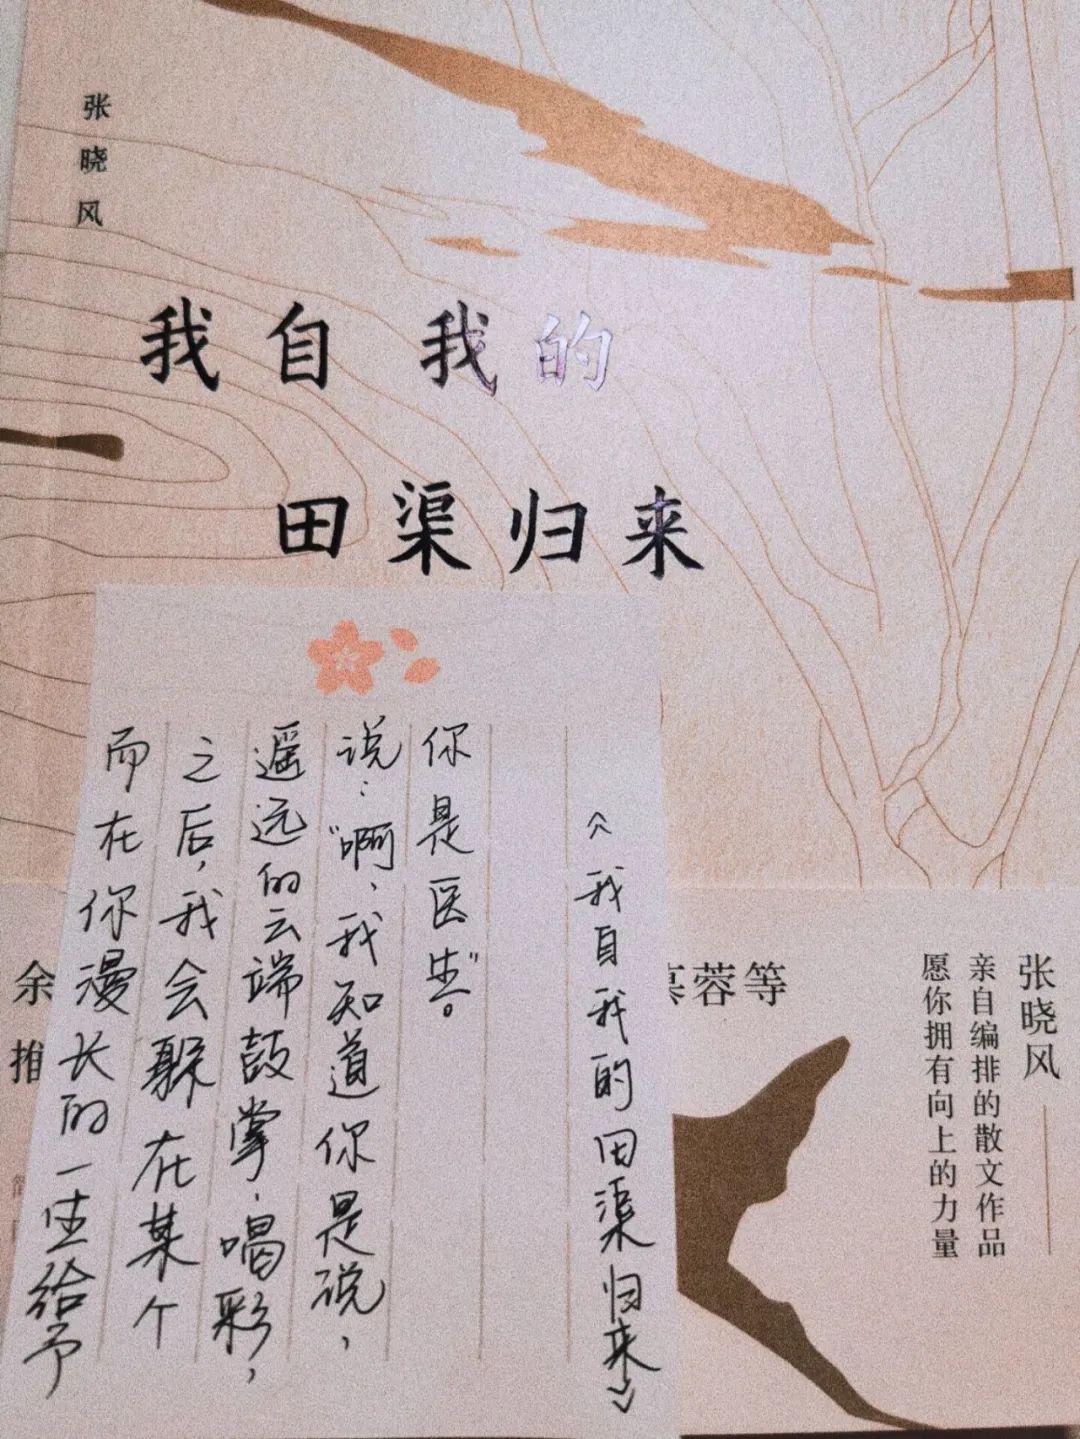 张晓风
我自 我的
田渠归来
而在你漫长的一生给予
之后，我会躲在某个
遥远的云端鼓掌、喝彩，
说：“啊、我知道你是说，
你是医生”。
《我自我的田渠归来》
余
慕蓉等
张晓风
亲自编排的散文作品
愿你拥有向上的力量